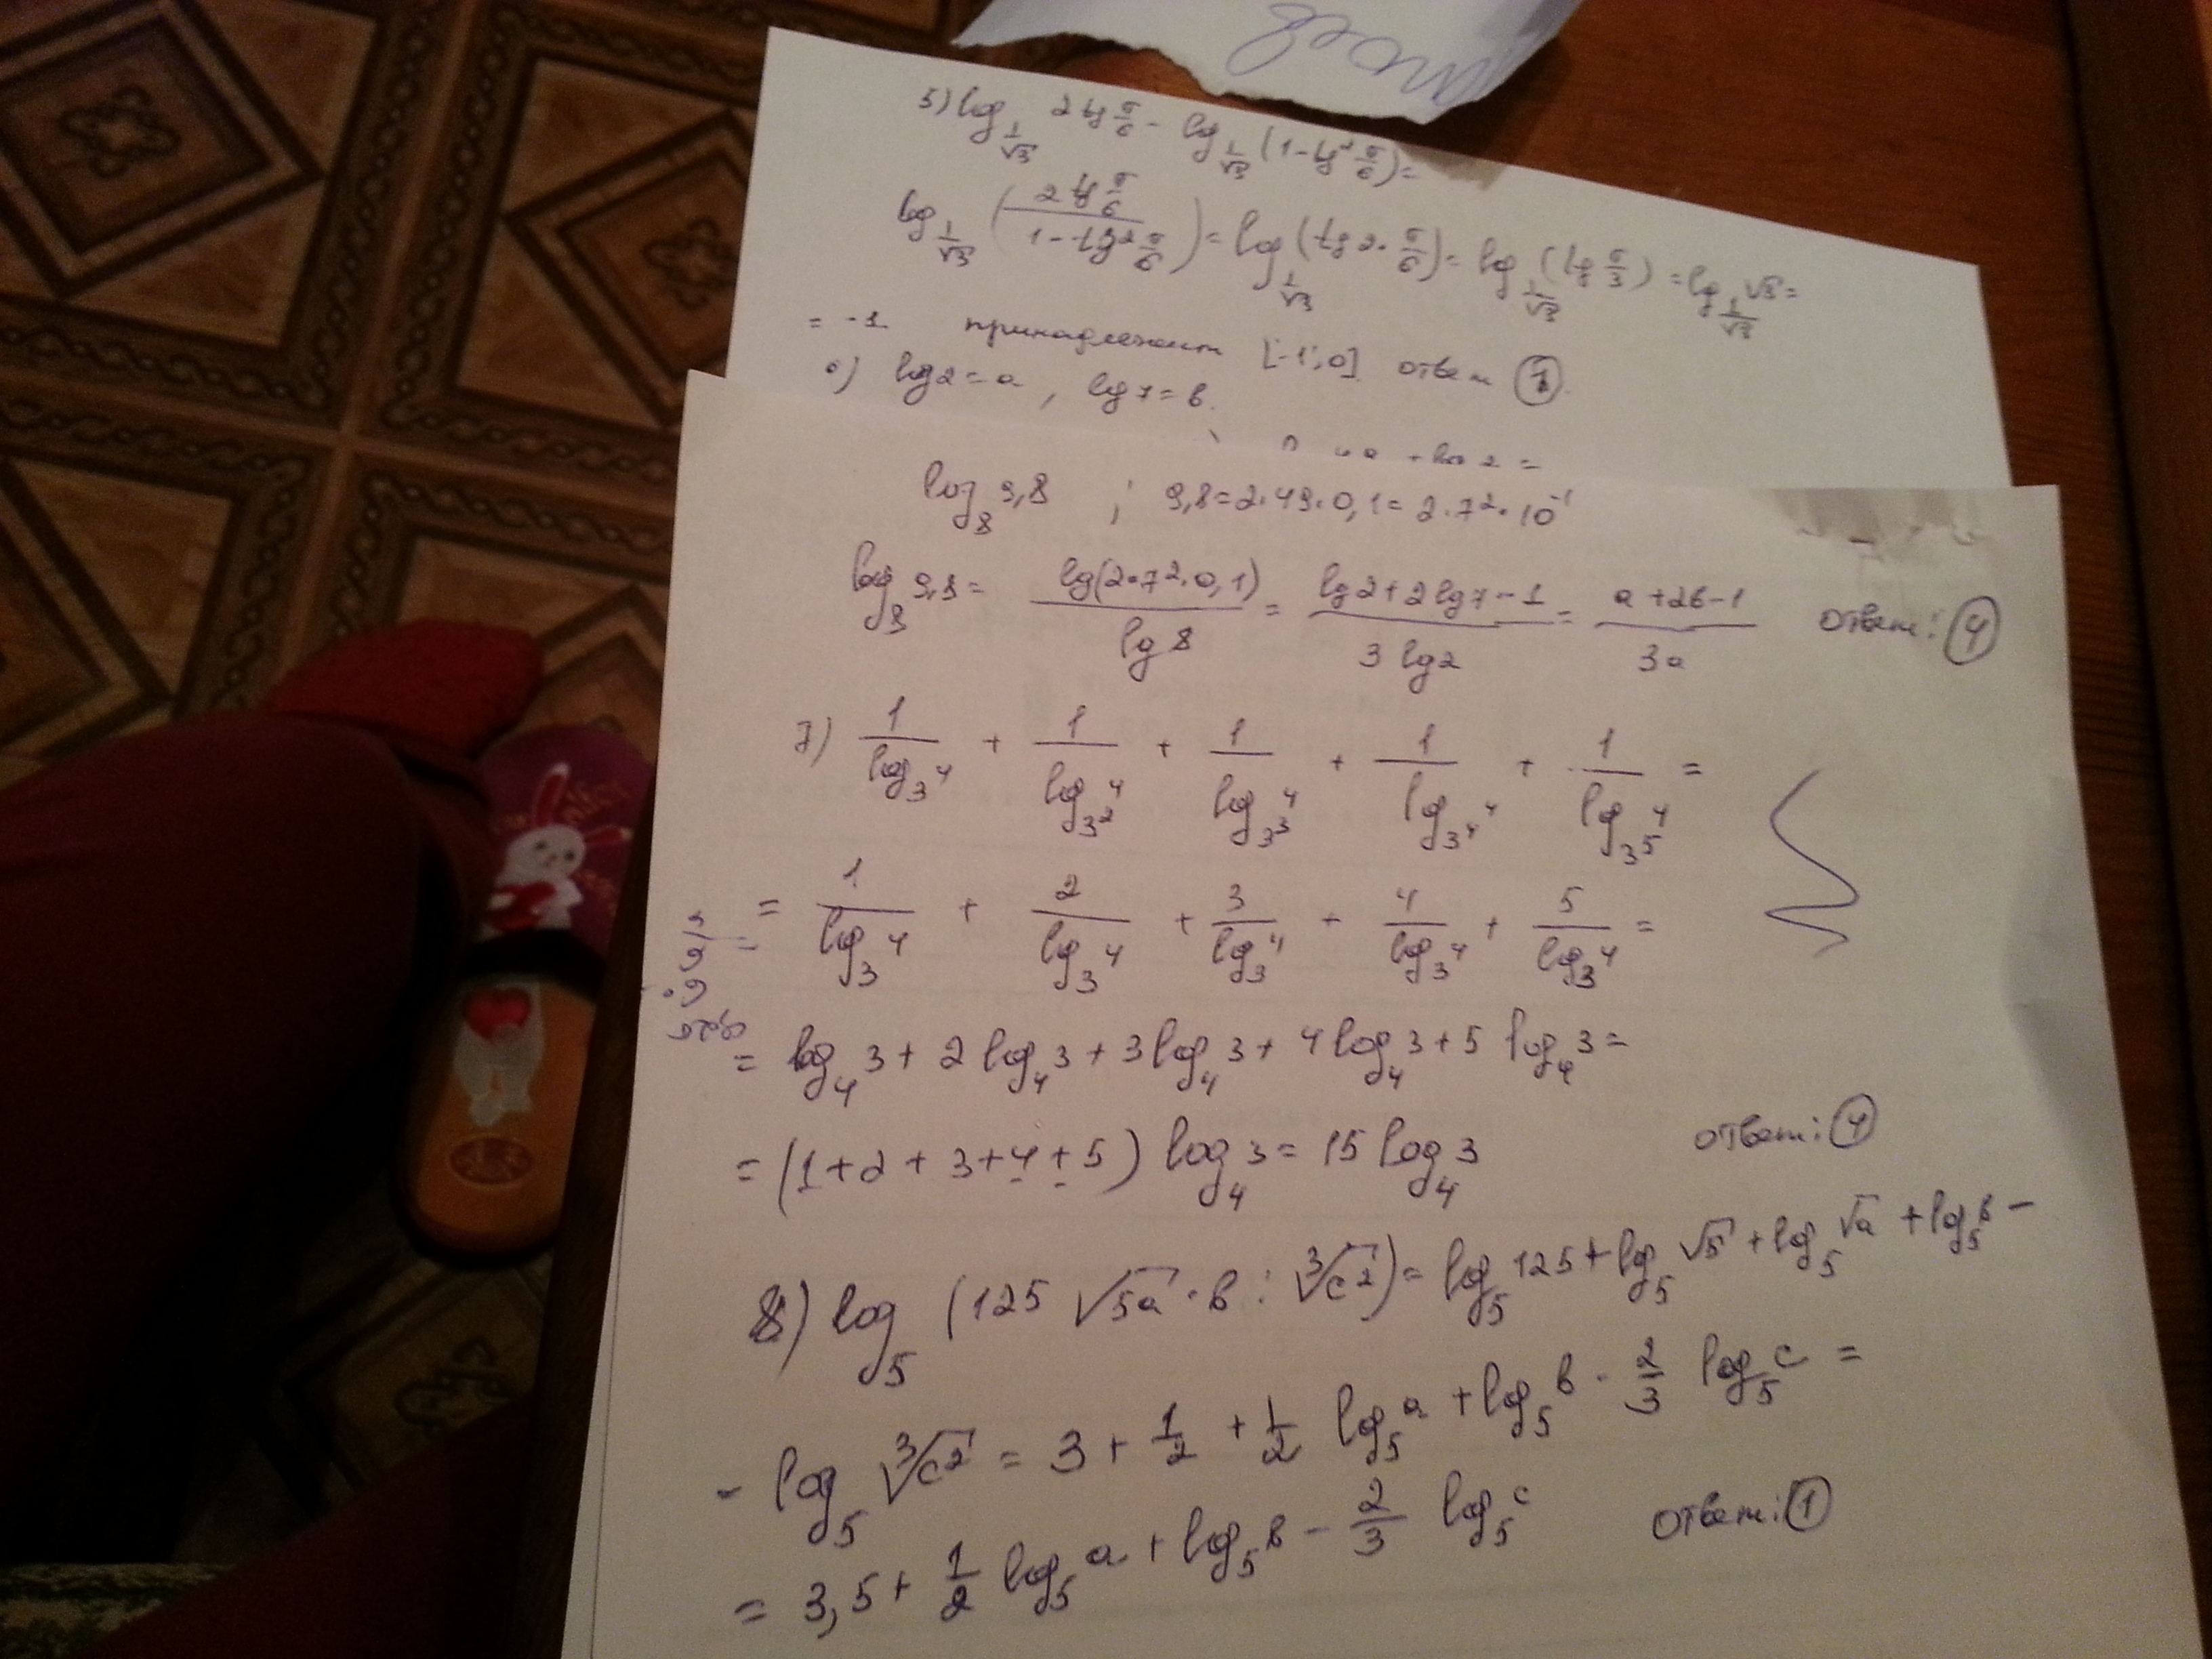 5) log_{1/√3} 2tg π/6 - log_{1/√3} (1-tg² π/6) =
log_{1/√3} (2tg π/6 / 1-tg² π/6) = log_{1/√3} (tg 2·π/6) = log_{1/√3} (tg π/3) = log_{1/√3} √3 =
= -1 принадлежит [-1;0] ответ ①
6) lg2=a, lg7=b.
log_8 9,8 ; 9,8=2·49·0,1=2·7²·10⁻¹
log_8 9,8 = lg(2·7²·0,1) / lg8 = lg2+2lg7-1 / 3lg2 = a+2b-1 / 3a ответ: ④
7) 1/log_3 4 + 1/log_{3²} 4 + 1/log_{3³} 4 + 1/log_{3⁴} 4 + 1/log_{3⁵} 4 =
= 1/log_3 4 + 2/log_3 4 + 3/log_3 4 + 4/log_3 4 + 5/log_3 4 =
= log_4 3 + 2log_4 3 + 3log_4 3 + 4log_4 3 + 5log_4 3 =
= (1+2+3+4+5) log_4 3 = 15 log_4 3 ответ: ④
8) log_5 (125 √5a · b : ∛c²) = log_5 125 + log_5 √5 + log_5 √a + log_5 b -
- log_5 ∛c² = 3 + 1/2 + 1/2 log_5 a + log_5 b - 2/3 log_5 c =
= 3,5 + 1/2 log_5 a + log_5 b - 2/3 log_5 c ответ: ①